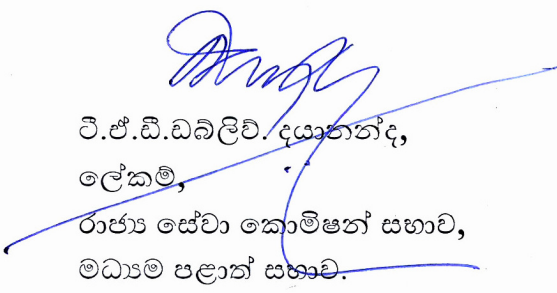 ටී.ඒ.ඩී.ඩබ්ලිව්. දයානන්ද,
ලේකම්,
රාජ්‍ය සේවා කොමිෂන් සභාව,
මධ්‍යම පළාත් සභාව.